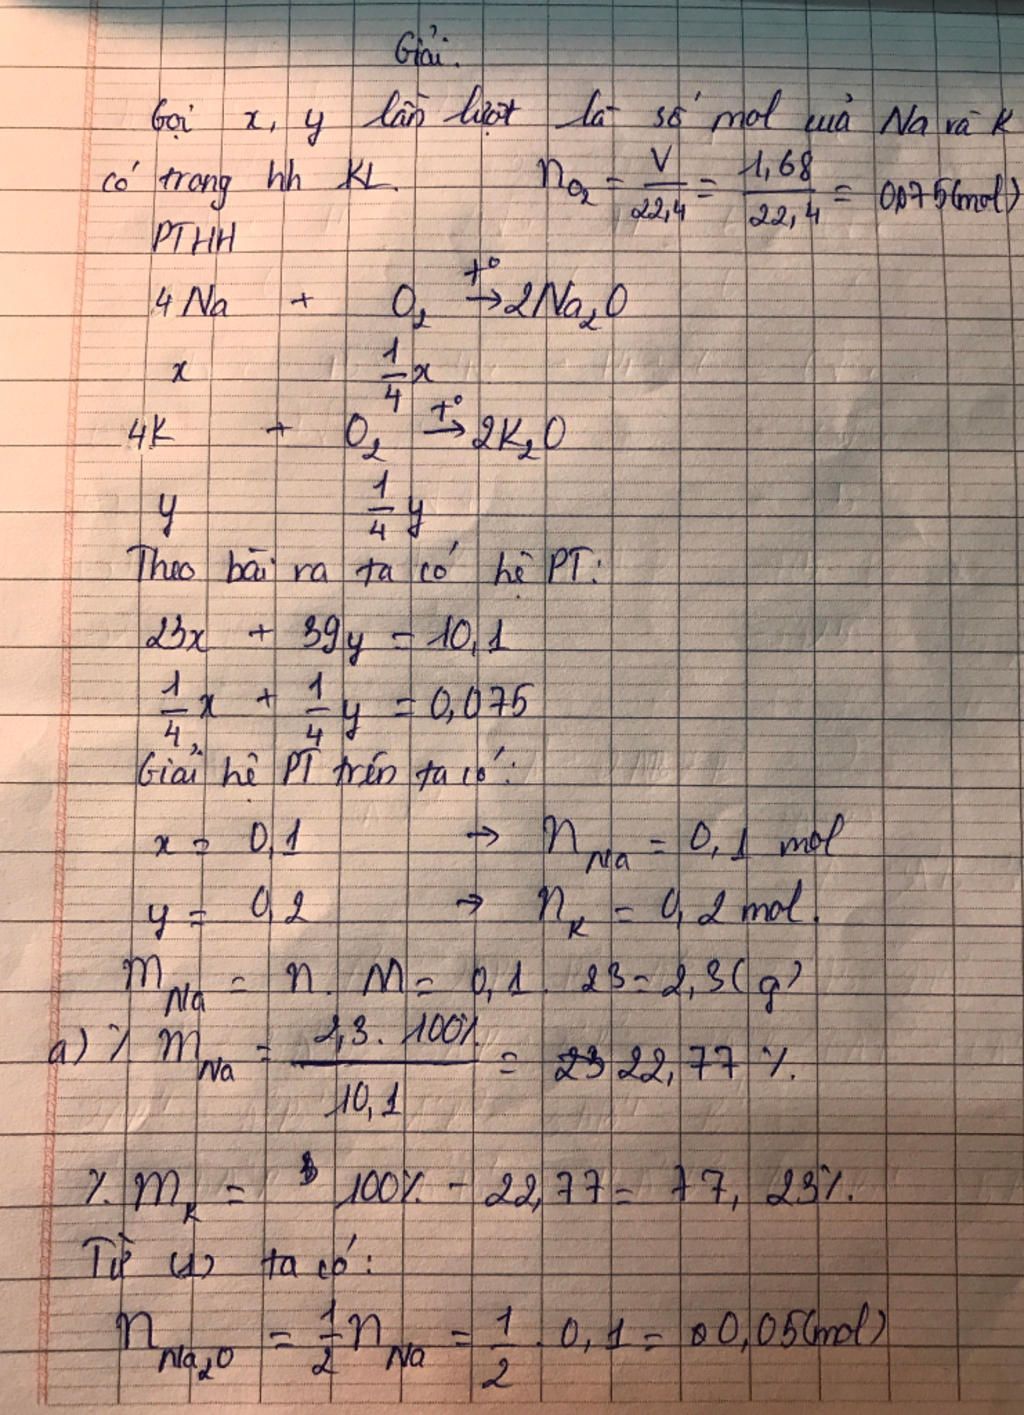 Giải.
Gọi x, y lần lượt là số mol của Na và K
có trong hh KL. n_O₂ = V/22,4 = 1,68/22,4 = 0,075(mol)
PTHH
4Na + O₂ →(t°) 2Na₂O
x 1/4 x
4K + O₂ →(t°) 2K₂O
y 1/4 y
Theo bài ra ta có hệ PT:
23x + 39y = 10,1
1/4 x + 1/4 y = 0,075
Giải hệ PT trên ta có:
x = 0,1 → n_Na = 0,1 mol
y = 0,2 → n_K = 0,2 mol.
m_Na = n. M = 0,1. 23 = 2,3(g)
a) % m_Na = 2,3. 100%/10,1 = 22,77 %.
% m_K = 100% - 22,77 = 77, 23%.
Từ (1) ta có:
n_Na₂O = 1/2 n_Na = 1/2 . 0,1 = 0,05(mol)